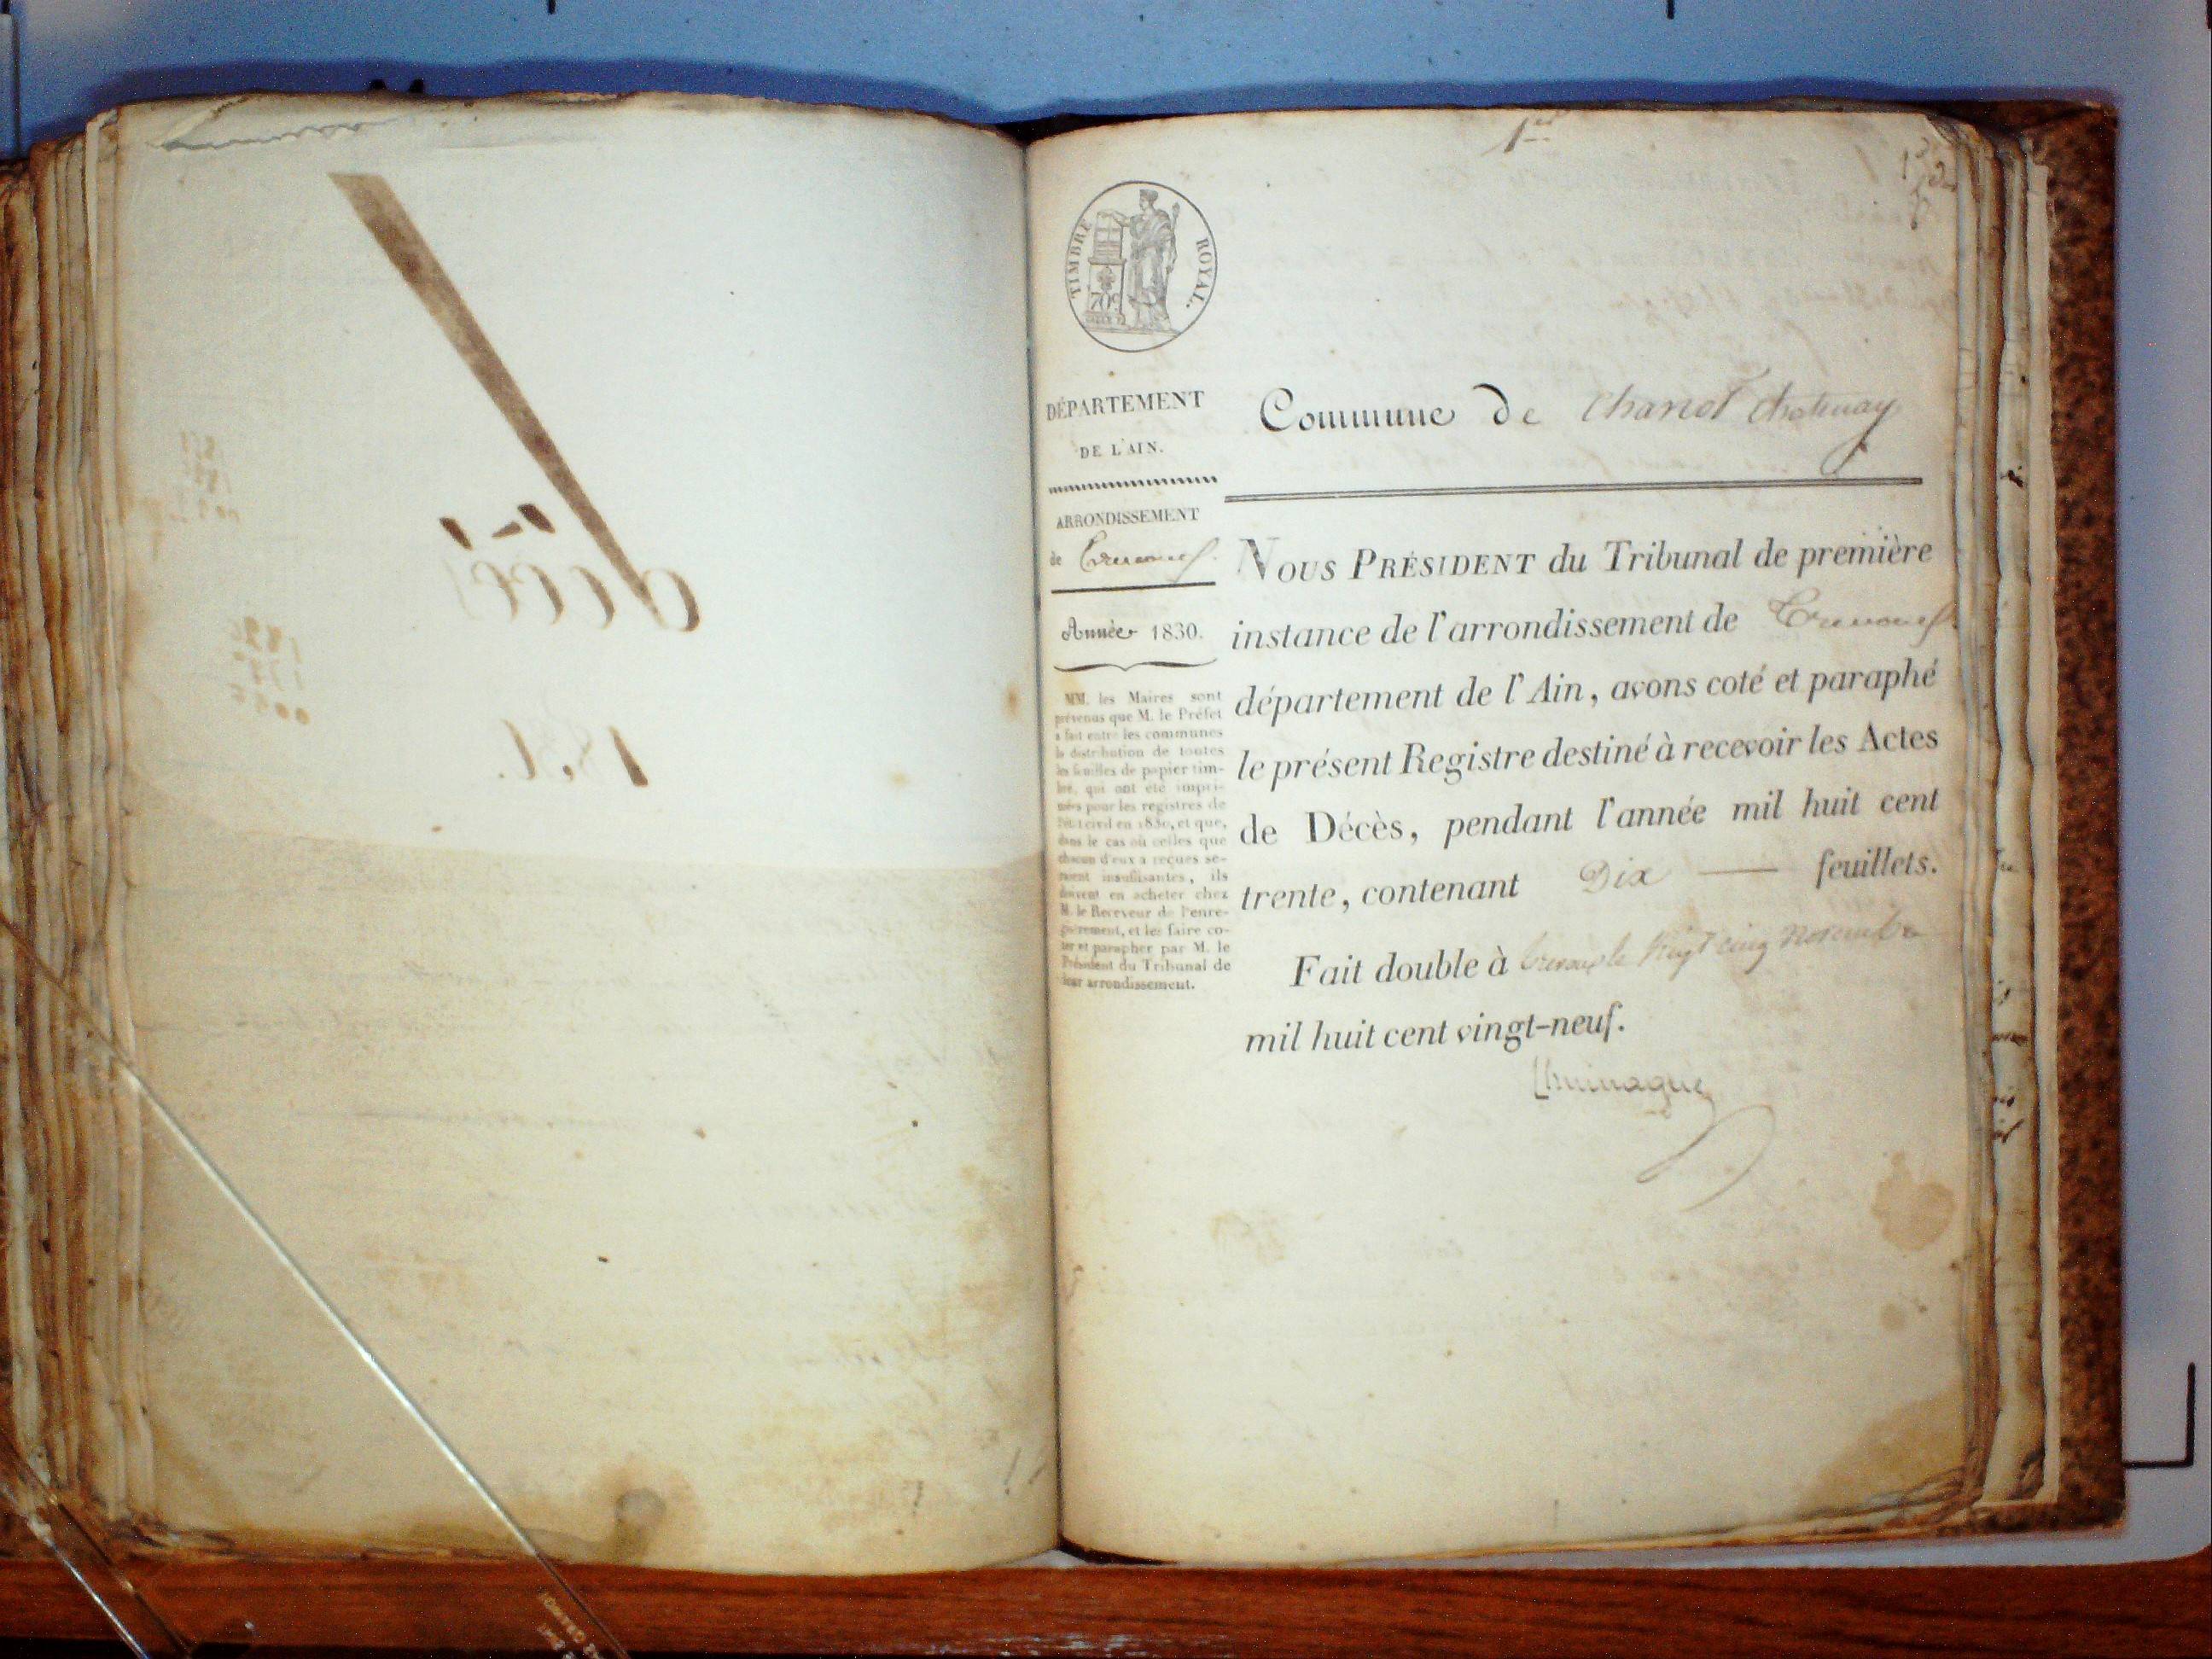 1er
TIMBRE ROYAL.
70c
DÉPARTEMENT
DE L'AIN.
Commune de Chanoz Chatenay
ARRONDISSEMENT
de Trevoux
Année 1830.
MM. les Maires sont
prévenus que M. le Préfet
a fait entre les communes
la distribution de toutes
les feuilles de papier tim-
bré, qui ont été impri-
mées pour les registres de
l'état civil en 1830, et que,
dans le cas où celles que
chacun d'eux a reçues se-
raient insuffisantes, ils
doivent en acheter chez
M. le Receveur de l'enre-
gistrement, et les faire co-
ter et parapher par M. le
Président du Tribunal de
leur arrondissement.
NOUS PRÉSIDENT du Tribunal de première
instance de l'arrondissement de Trevoux
département de l'Ain, avons coté et paraphé
le présent Registre destiné à recevoir les Actes
de Décès, pendant l'année mil huit cent
trente, contenant Dix — feuillets.
Fait double à Trevoux le vingt cinq novembre
mil huit cent vingt-neuf.